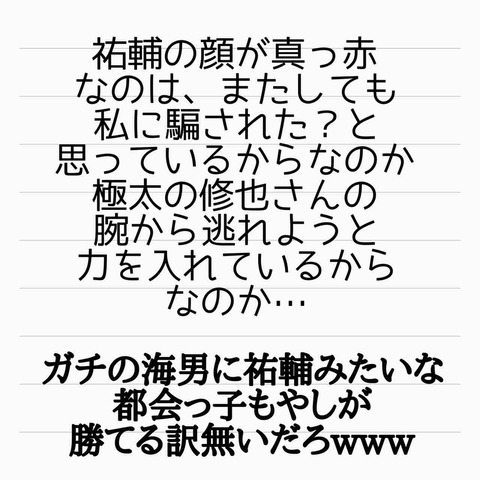 祐輔の顔が真っ赤
なのは、またしても
私に騙された？と
思っているからなのか
極太の修也さんの
腕から逃れようと
力を入れているから
なのか…
ガチの海男に祐輔みたいな
都会っ子もやしが
勝てる訳無いだろwww